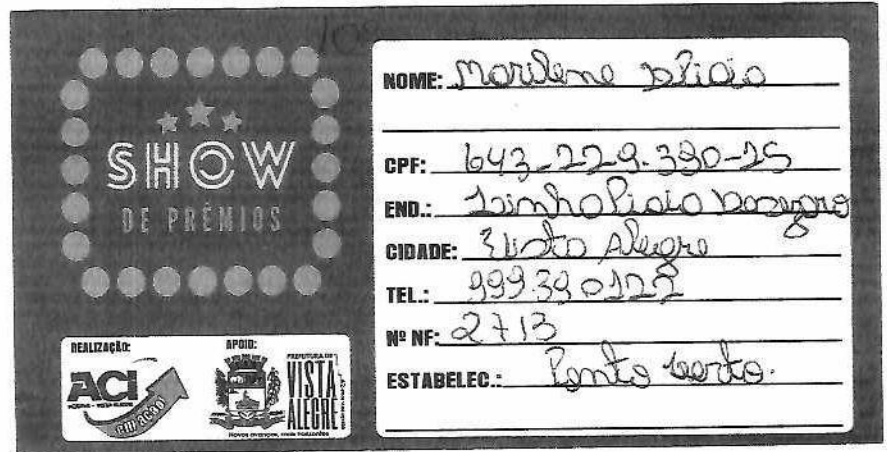 108
SHOW
DE PRÊMIOS
REALIZAÇÃO:
ACI
em ação
APOIO:
PREFEITURA DE
VISTA
ALEGRE
Novos avanços, mais horizontes
NOME: Marilene
CPF: 643-229.390-25
END.: Linha
CIDADE: Vista Alegre
TEL.: 999390122
Nº NF: 2713
ESTABELEC.: Ponto Certo.